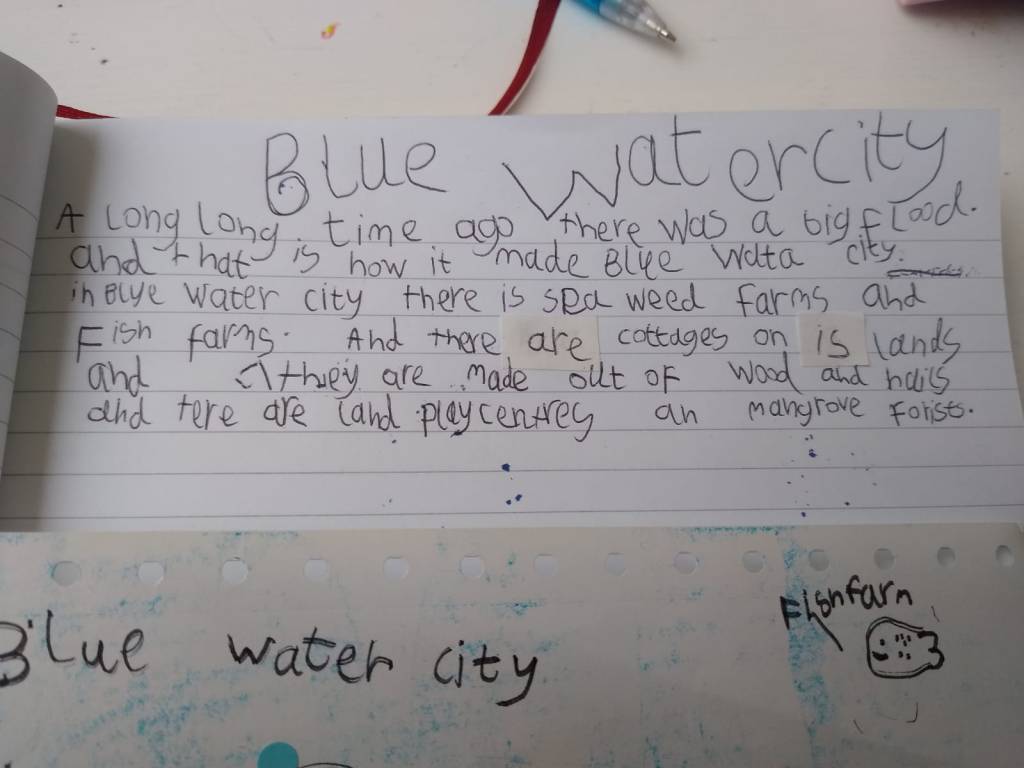 Blue Watercity
A long long time ago there was a big flood.
and that is how it made Blue Wata city.
in Blue water city there is sea weed farms and
Fish farms. And there are cottages on is lands
and they are made out of wood and nails
and tere are land playcentres an mangrove forists.
Fishfarn
Blue water city